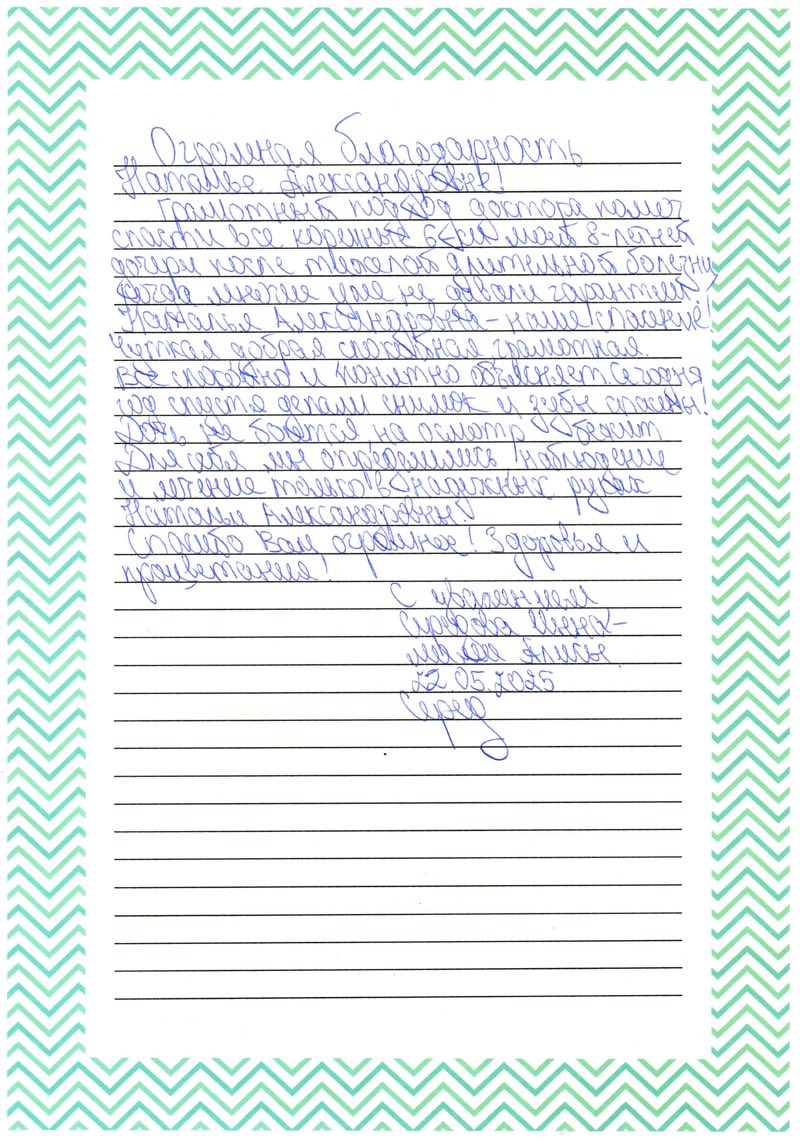 Огромная благодарность
Наталье Александровне!
Грамотный подход доктора помог
спасти все коренные 6-ки моей 8-летней
дочери после тяжелой длительной болезни,
когда многие уже не давали гарантий,
Наталья Александровна – наше спасение!
Чуткая добрая спокойная грамотная.
Все спокойно и понятно объясняет. Сегодня
год спустя делали снимок и зубы спасены!
Дочь не боится на осмотр бежит
Для себя мы определились наблюдение
и лечение только в надежных руках
Натальи Александровны!
Спасибо Вам огромное! Здоровья и
процветания!
С уважением
Инна –
мама Алисы.
22.05.2025